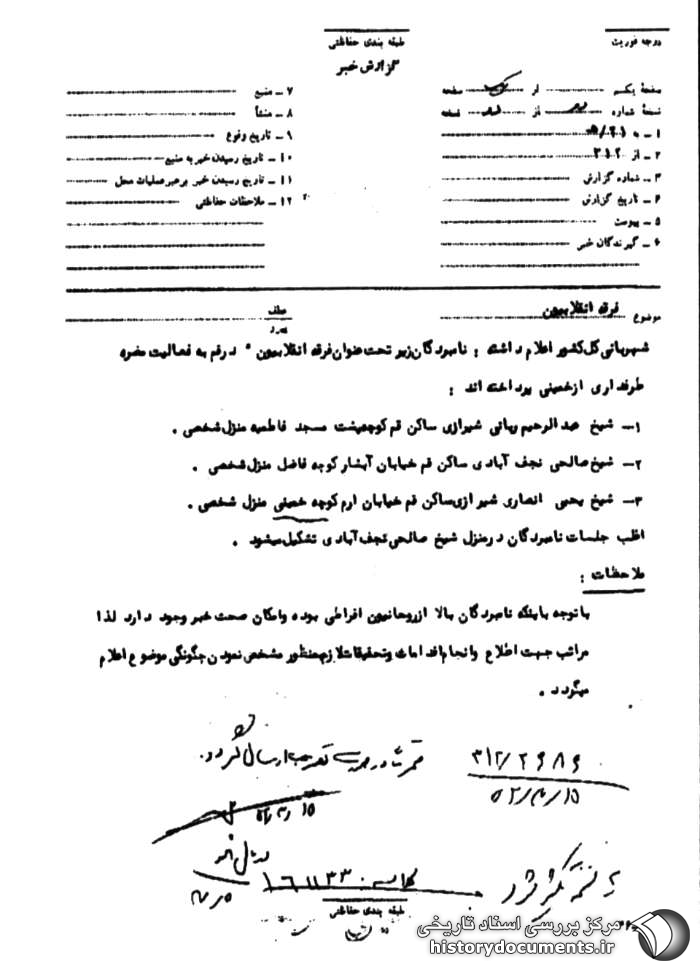 درجه فوریت
طبقه بندی حفاظتی
گزارش خبر
صفحهٔ یکم از یک صفحه
نسخهٔ شماره از نسخه
۱ ـ به ۲۱/ﻫ
۲ ـ از ۳۱۲
۳ ـ شماره گزارش
۴ ـ تاریخ گزارش
۵ ـ پیوست
۶ ـ گیرندگان خبر
۷ ـ منبع
۸ ـ منشأ
۹ ـ تاریخ وقوع
۱۰ ـ تاریخ رسیدن خبر به منبع
۱۱ ـ تاریخ رسیدن خبر برهبر عملیات محل
۱۲ ـ ملاحظات حفاظتی
موضوع فرقه انقلابیون
عطف
پیرو
شهربانی کل کشور اعلام داشته : نامبردگان زیر تحت عنوان فرقه انقلابیون " در قم به فعالیت مضره
طرفداری از خمینی پرداخته اند :
۱ـ شیخ عبدالرحیم ربانی شیرازی ساکن قم کوچه پشت مسجد فاطمیه منزل شخصی .
۲ـ شیخ صالحی نجف آبادی ساکن قم خیابان آبشار کوچه فاضل منزل شخصی .
۳ـ شیخ یحیی انصاری شیرازی ساکن قم خیابان ارم کوچه خمینی منزل شخصی .
اغلب جلسات نامبردگان در منزل شیخ صالحی نجف آبادی تشکیل میشود .
ملاحظات :
با توجه باینکه نامبردگان بالا از روحانیون افراطی بوده و امکان صحت خبر وجود دارد لذا
مراتب جهت اطلاع و انجام اقدامات و تحقیقات لازم بمنظور مشخص نمودن چگونگی موضوع اعلام
میگردد .
ارسال گردد.
۳۱۲/۲۶۸۶
۵۲/۳/۱۵
۵۲/۳/۱۵
۱۶۱۱۳۳۰
طبقه بندی حفاظتی
مرکز بررسی اسناد تاریخی
historydocuments.ir